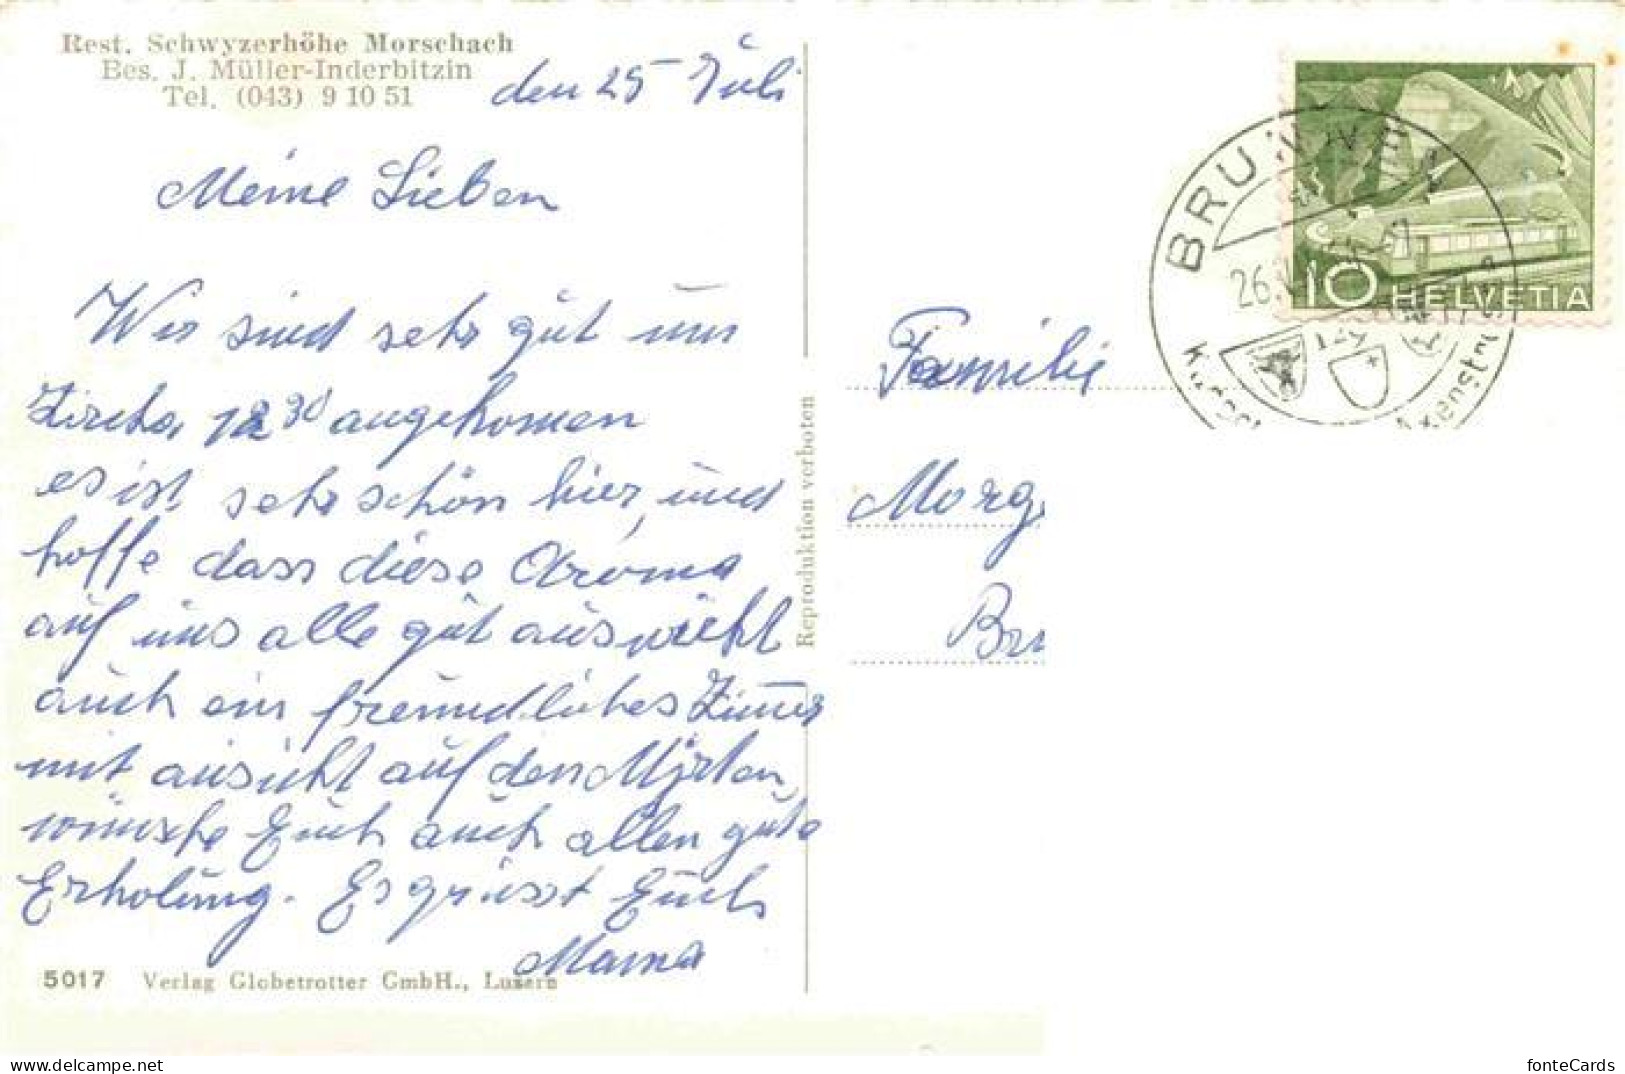 Rest. Schwyzerhöhe Morschach
Bes. J. Müller-Inderbitzin
Tel. (043) 9 10 51
den 25 Juli
Meine Lieben
Wir sind sehr gut um
Zircka 12 30 angekomen
es ist sehr schön hier, und
hoffe dass diese Aroma
auf uns alle gut auswirkt
auch ein freundliches Zimer
mit aussicht auf den Myrten,
wünsche Euch auch allen gute
Erholung. Es grüsst Euch
Mama
5017 Verlag Globetrotter GmbH., Luzern
Reproduktion verboten
BRUNNEN
26.
HELVETIA
10
Familie
Morg
Bru
fonteCards